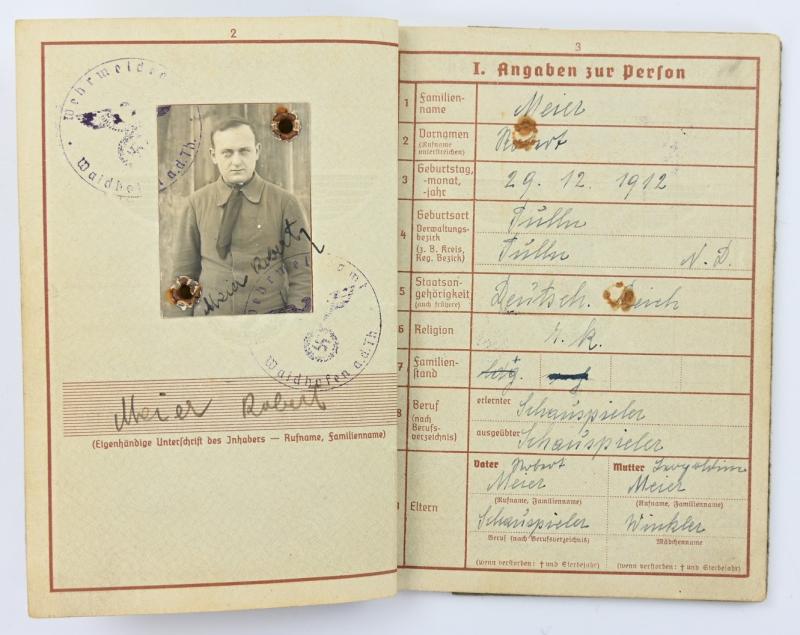 2
Wehrmeldeamt
Waidhofen a.d.Th.
Meier Robert
Wehrmeldeamt
Waidhofen a.d.Th.
Meier Robert
(Eigenhändige Unterschrift des Inhabers — Rufname, Familienname)
3
I. Angaben zur Person
1 Familien-
name
Meier
2 Vornamen
(Rufname
unterstreichen)
Robert
3 Geburtstag,
-monat,
-jahr
29. 12. 1912
4 Geburtsort
Verwaltungs-
bezirk
(z. B. Kreis,
Reg. Bezirk)
Tulln
Tulln N. D.
5 Staatsan-
gehörigkeit
(auch frühere)
Deutsch. Reich
6 Religion
r. k.
7 Familien-
stand
8 Beruf
(nach
Berufs-
verzeichnis)
erlernter Schauspieler
ausgeübter Schauspieler
9 Eltern
Vater Robert
Meier
(Rufname, Familienname)
Schauspieler
Beruf (nach Berufsverzeichnis)
(wenn verstorben: † und Sterbejahr)
Mutter Leopoldine
Meier
(Rufname, Familienname)
Winkler
Mädchenname
(wenn verstorben: † und Sterbejahr)